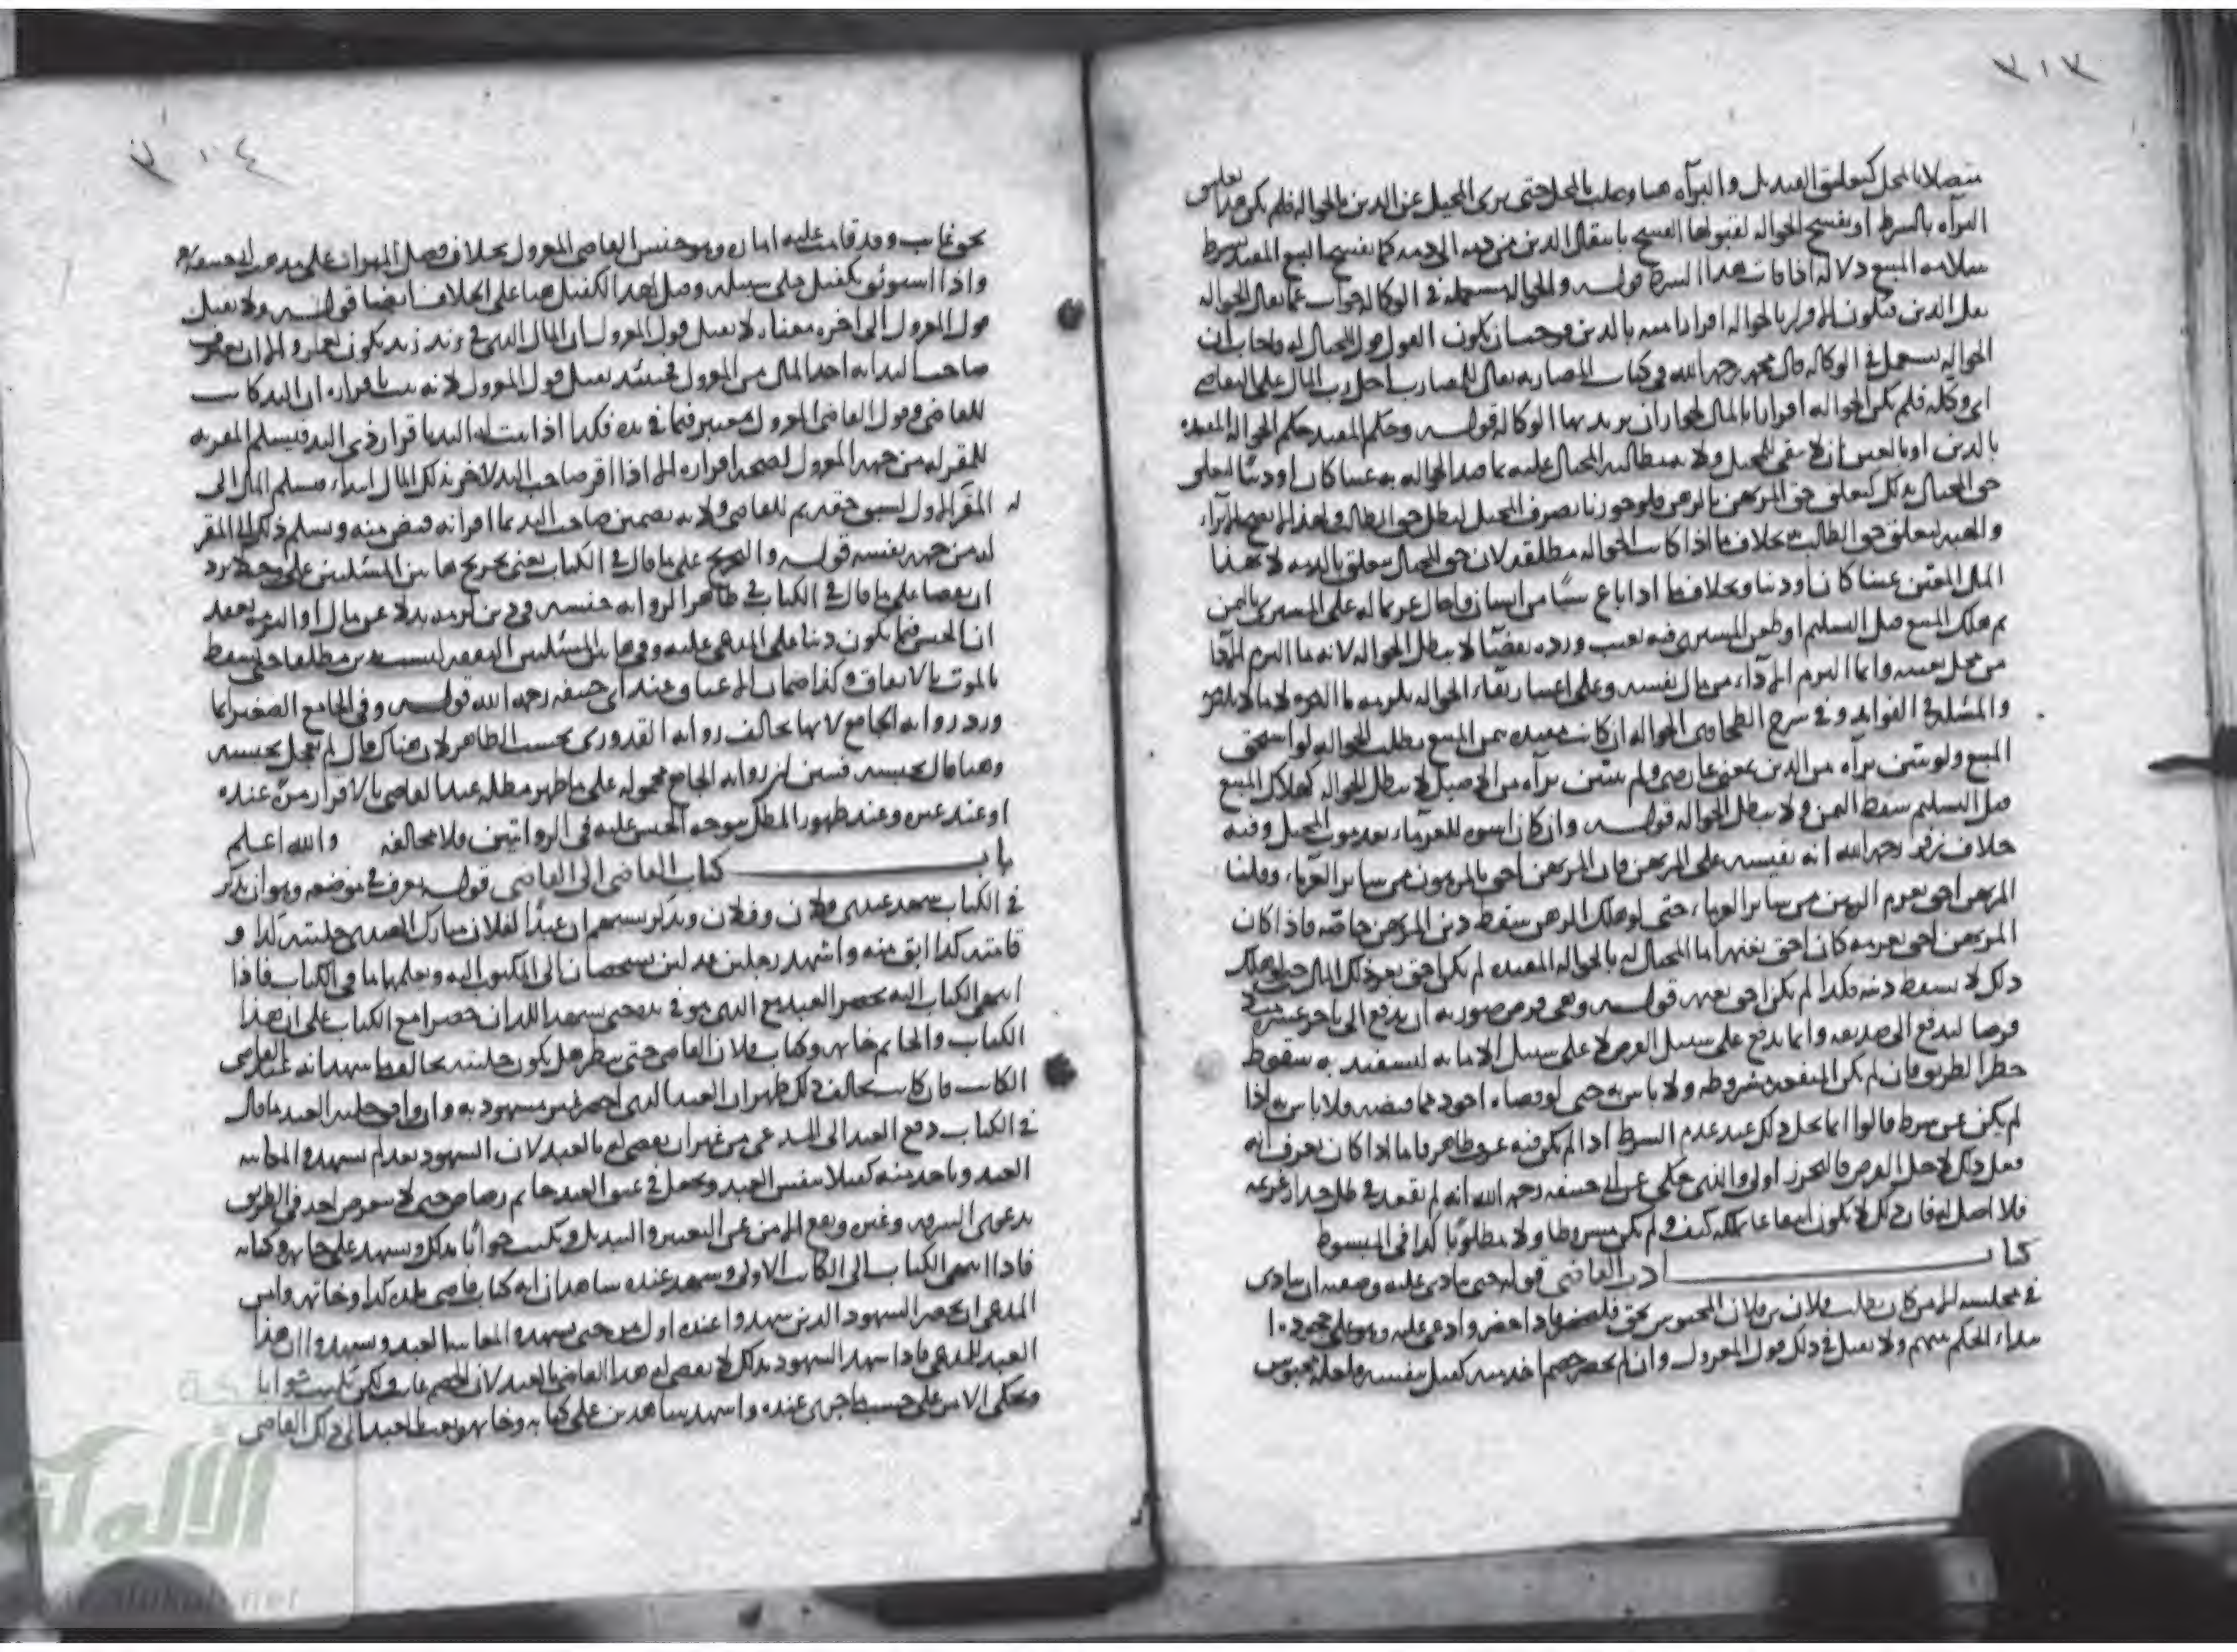 ٣٠٣
متصلا بالمحل كتعليق القنديل والبرآة هنا وصلت بالمحل حتى برئ المحيل عن الدين بالحواله فلم يكن هذا تعليق
البرآة بالشرط او يفسخ الحواله لقبولها الفسخ بانتقال الدين من ذمه الى ذمه كما يفسخ البيع المقيد بشرط
سلامه المبيع دلاله اذا فات هذا الشرط قوله والحواله مستعمله في الوكاله جواب عما يقال الحواله
نقل الدين فتكون اقراره بالحواله اقرارا منه بالدين فوجب ان يكون القول قول المحتال له فاجاب ان
الحواله تستعمل في الوكاله قال محمد رحمه الله في كتاب المضاربه يقال للمضارب احل رب المال على التقاضي
اى وكله فلم تكن الحواله اقرارا بالمال لجواز ان يريد بها الوكاله قوله وحكم المقيد حكم الحواله المقيده
بالدين او بالعين ان لا يبقى للمحيل ولايه مطالبه المحتال عليه بما قيد الحواله به عينا كان او دينا لتعلق
حق المحتال بذلك كتعلق حق المرتهن بالرهن فلو جوزنا تصرف المحيل لبطل حق الطالب
بخلاف ما اذا كانت الحواله مطلقه لان حق المحتال يتعلق بالذمه لا بهذا
المال المعين عينا كان او دينا وبخلاف ما اذا باع شيئا من انسان واحال غريما له على المشترى بالثمن
ثم هلك المبيع قبل التسليم او طعن المشترى فيه بعيب ورده بقضاء لا تبطل الحواله لانه ما التزم الادآء
من محل بعينه وانما التزم الادآء من مال نفسه وعلى اعتبار بقاء الحواله يلزمه ما التزمه
والمسئله في الفوايد وفي شرح الطحاوي الحواله ان كانت مقيده بثمن المبيع بطلت الحواله لو استحق
المبيع ولو تبين برآه من الدين بمعنى عارض ولم يتبين برآه من الاصيل لا تبطل الحواله كهلاك المبيع
قبل التسليم سقط الثمن ولا تبطل الحواله قوله وان كان اسوه للغرماء بعد موت المحيل وفيه
خلاف زفر رحمه الله انه يقيسه على المرتهن فان المرتهن احق بالمرهون من ساير الغرماء وقلنا
المرتهن احق بغرم الرهن من ساير الغرماء حتى لو هلك الرهن سقط دين المرتهن خاصه فاذا كان
المرتهن احق بغرمه كان احق بغنمه اما المحتال له بالحواله المقيده لم يكن احق بغرم ذلك المال حتى لو هلك
ذلك لا يسقط دينه فكذا لم يكن احق بغنمه قوله وهى قرض صورته ان يدفع الى تاجر عشره
قرضا ليدفع الى صديقه وانما يدفع على سبيل القرض لا على سبيل الامانه ليستفيد به سقوط
خطر الطريق فان لم تكن المنفعه مشروطه ولا باس به حتى لو قضاه اجود مما قبضه فلا باس به اذا
لم يكن عن شرط قالوا انما يحل ذلك عند عدم الشرط اذا لم يكن فيه عرف ظاهر فاما اذا كان يعرف انه
فعل ذلك لاجل القرض فالتحرز اولى والذى حكى عن ابى حنيفه رحمه الله انه لم يقعد في ظل جدار غريمه
فلا اصل له فان ذلك لا يكون انتفاعا بملكه كيف ولم يكن مشروطا ولا مطلوبا كذا في المبسوط
كتاب ادب القاضى قوله حتى ينادى عليه وصفته ان ينادى
في مجلسه ان من كان يطلب فلان بن فلان المحبوس بحق فليحضر فاذا حضر وادعى عليه وهو على جحوده
ابتداء الحكم بينهم ولا يقبل في ذلك قول المعزول وان لم يحضر خصم اخذ منه كفيل بنفسه ولعله محبوس
٣٠٤
بحق غايب وقد قامت عليه اماره وهو حبس القاضى المعزول بخلاف فصل الميراث على مذهب ابى حنيفه
واذا استوثق بكفيل خلى سبيله وقيل اخذ الكفيل هنا على الخلاف ايضا قوله ولا يقبل
قول المعزول الى اخره معناه لا يقبل قول المعزول ان المال الذى في يد زيد يكون لعمرو الا ان يعترف
صاحب اليد انه اخذ المال من المعزول فحينئذ يقبل قول المعزول لانه ثبت باقراره ان اليد كانت
للقاضى وقول القاضى المعزول معتبر فيما في يده فكذا اذا ثبت له اليد باقرار ذى اليد فيسلم المقر به
للمقر له من جهه المعزول لصحه اقراره الا اذا اقر صاحب اليد لاخر بذلك المال ابتداء فيسلم المال الى
المقر له الاول لسبق حقه ثم للقاضى ولانه يضمن صاحب اليد بما اقر انه قبض منه ويسلم ذلك الى المقر
له من جهه نفسه قوله والتخريج على ما قال في الكتاب يعنى تخريج هاتين المسئلتين
على ما قال في الكتاب في ظاهر الروايه حبسه في دين لزمه بدلا عن مال او التزمه بعقد
ان الحبس فيما يكون دينا على المدعى عليه وفي هاتين المسئلتين النفقه ليست بدين مطلقا حتى يسقط
بالموت بالاتفاق وكذا ضمان الاعتاق عند ابى حنيفه رحمه الله قوله وفي الجامع الصغير انما
ورد روايه الجامع لانها تخالف روايه القدورى بحسب الظاهر لان هناك قال لم يعجل بحبسه
وهنا قال يحبسه فتبين ان روايه الجامع محموله على ما ظهر مطله عند القاضى بالاقرار مره عنده
او عند غيره وعند ظهور المطل يتوجه الحبس عليه في الروايتين فلا مخالفه والله اعلم
باب كتاب القاضى الى القاضى قوله يعرف في موضعه وهو ان يذكر
في الكتاب شهد عندى فلان وفلان ويذكر نسبهم ان عبدا لفلان مبارك الهندى حليته كذا و
قامته كذا ابق منه واشهد رجلين عدلين يشخصان الى المكتوب اليه ويعلمهما ما في الكتاب فاذا
انتهى الكتاب اليه يحضر العبد مع الذى هو في يده حتى يشهد اللذان حضرا مع الكتاب على ان هذا
الكتاب والخاتم خاتم وكتاب فلان القاضى حتى ينظر هل يكون حليته يخالف ما شهدا به عند القاضى
الكاتب فان كانت يخالف ذلك ظهر ان العبد الذى احضر غير مشهود به وان وافق حليه العبد ما قال
في الكتاب دفع العبد الى المدعى من غير ان يقضى له بالعبد لان الشهود بعد لم يشهدوا بمعاينه
العبد وياخذ منه كفيلا بنفس العبد ويجعل في عنق العبد خاتم رصاص حتى لا يتعرض احد في الطريق
بدعوى السرقه وغيره ويقع الامن عن التغيير والتبديل ويكتب جوابا بذلك ويشهد على خاتمه وكتابه
فاذا انتهى الكتاب الى الكاتب الاول ويشهد عنده شاهدان انه كتاب قاضى بلده كذا وخاتمه وامر
المدعى ان يحضر الشهود الذين شهدوا عنده اول مره حتى يشهدوا بمعاينه العبد ويشهدوا ان هذا
العبد للمدعى فاذا شهد الشهود بذلك لا يقضى له هذا القاضى بالعبد لان الخصم غايب ولكن يكتب جوابا
ويحكى الامر على حسب ما جرى عنده واشهد شاهدين على كتابه وخاتمه وبعث العبد الى ذلك القاضى
الألوكة